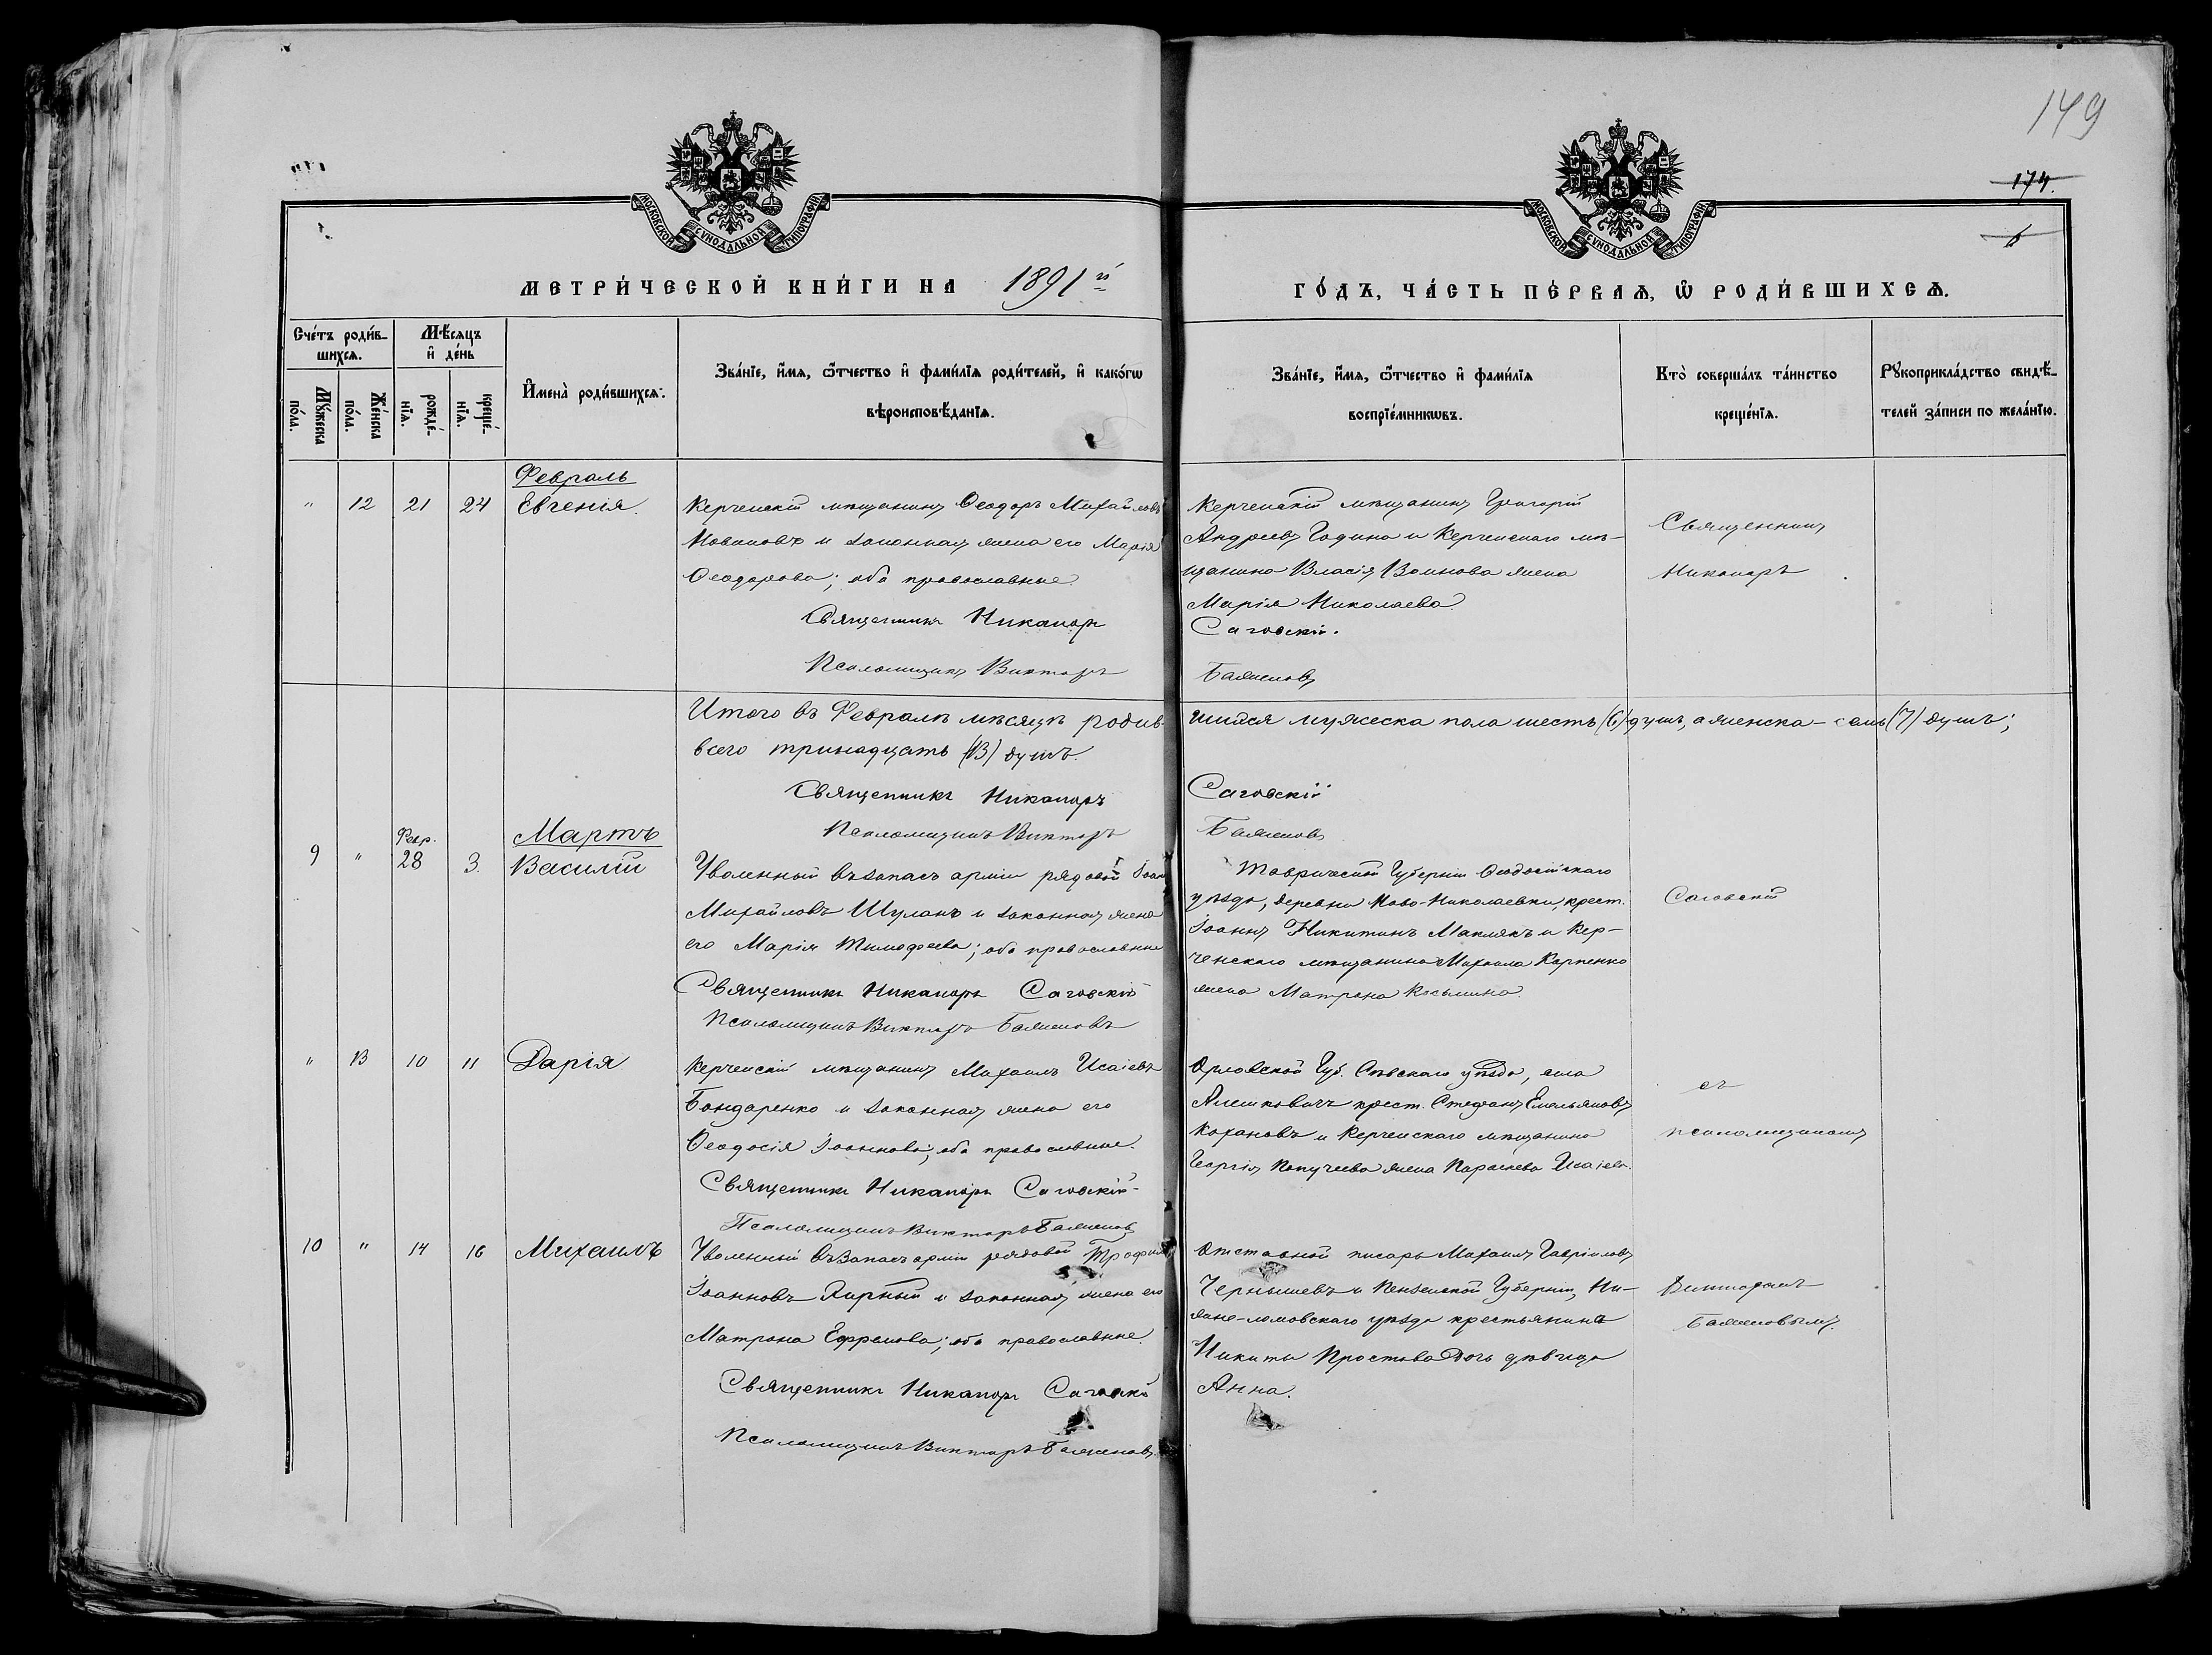 149
174.
6
МОСКОВСКОЙ СУНОДАЛЬНОЙ ТИПОГРАФІИ
МОСКОВСКОЙ СУНОДАЛЬНОЙ ТИПОГРАФІИ
МЕТРИ́ЧЕСКОЙ КНИ́ГИ НА 1891й
ГО́ДЪ, ЧА́СТЬ ПЕ́РВАѦ, Ѡ РОДИ́ВШИХСѦ.
Сче́тъ роди́в-
шихсѧ.
Мѣ́сѧцъ
и҆ де́нь
Мꙋ́жеска
по́ла.
Же́нска
по́ла.
рожде́-
нїѧ.
креще́-
нїѧ.
И҆мена̀ роди́вшихсѧ.
Зва́нїе, и҆́мѧ, ѻ҆́тчество и҆ фами́лїѧ роди́телей, и҆ како́гѡ
вѣроисповѣ́данїѧ.
Зва́нїе, и҆́мѧ, ѻ҆́тчество и҆ фами́лїѧ
воспрїе́мникѡвъ.
Кто̀ соверша́лъ та́инство
креще́нїѧ.
Рꙋкоприкла́дство свидѣ́-
телей за́писи по жела́нїю.
Февраль
" 12 21 24 Евгенія.
Керченскій мѣщанинъ Ѳеодоръ Михайловъ
Новиковъ и законная жена его Марія
Ѳеодорова; оба православные.
Священникъ Никаноръ
Псаломщикъ Викторъ
Керченскій мѣщанинъ Григорій
Андреевъ Година и Керченскаго мѣ-
щанина Власія Воинова жена
Марія Николаева.
Саговскій.
Баженовъ
Священникъ
Никаноръ
Итого въ Февралѣ мѣсяцѣ родив-
шихся мужеска пола шесть (6) душъ, а женска - семь (7) душъ;
всего тринадцать (13) душъ.
Священникъ Никаноръ Саговскій
Псаломщикъ Викторъ Баженовъ
Мартъ
Февр.
9 " 28 3. Василій
Уволенный въ запасъ арміи рядовой Іоаннъ
Михайловъ Шуланъ и законная жена
его Марія Тимофеева; оба православные
Священникъ Никаноръ Саговскій
Псаломщикъ Викторъ Баженовъ
Таврической Губерніи Ѳеодосійскаго
уѣзда, деревни Ново-Николаевки, крест.
Іоаннъ Никитинъ Маклякъ и Кер-
ченскаго мѣщанина Михаила Карпенко
жена Матрона Косьмина.
Саговскій
" 13 10 11 Дарія
Керченскій мѣщанинъ Михаилъ Исаіевъ
Бондаренко и законная жена его
Ѳеодосія Іоаннова; оба православные.
Священникъ Никаноръ Саговскій
Псаломщикъ Викторъ Баженовъ
Орловской Губ. Сѣвскаго уѣзда, села
Алешковичъ крест. Стефанъ Емельяновъ
Кохановъ и Керченскаго мѣщанина
Георгія Капучеева жена Параскева Исаіева.
съ
псаломщикомъ
10 " 14 16 Михаилъ
Уволенный въ запасъ арміи рядовой Трофимъ
Іоанновъ Жирный и законная жена его
Матрона Ефремова; оба православные.
Священникъ Никаноръ Саговскій
Псаломщикъ Викторъ Баженовъ.
Отставной писарь Михаилъ Гавріиловъ
Чернышевъ и Пензенской Губерніи, Ни-
жне-ломовскаго уѣзда крестьянина
Никиты Простова дочь дѣвица
Анна.
Викторомъ
Баженовымъ.